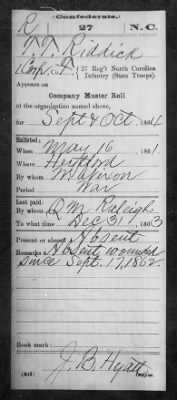 Confederate.
R 27 N.C.
T. T. Riddick
Corp'l, F, 27 Reg't North Carolina
Infantry (State Troops)
Appears on
Company Muster Roll
of the organization named above,
for Sept & Oct, 1864
Enlisted:
When May 16, 1861.
Where Hertford
By whom
Period War
Last paid:
By whom Q.M. Raleigh
To what time Dec 31, 1863
Present or absent Absent
Remarks Absent wounded
since Sept. 17, 1862.
Book mark:
J. B. Hyatt
Copyist.